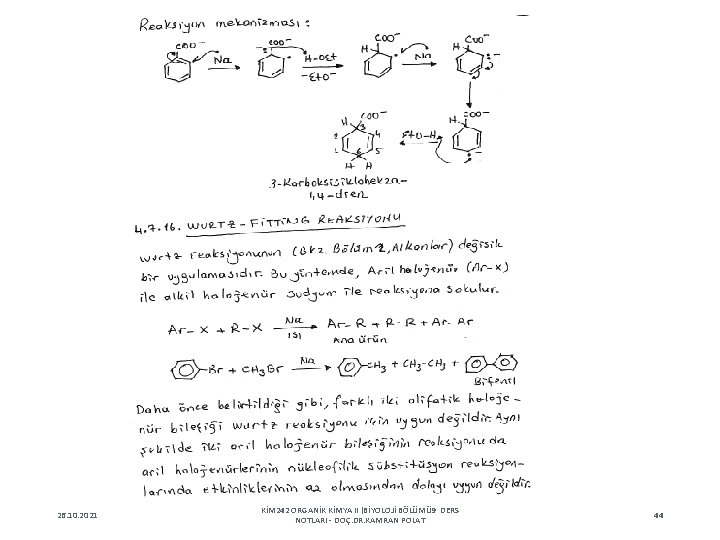 Reaksiyon mekanizması :
COO⁻ Na COO⁻ H-OEt -EtO⁻ H COO⁻ Na H COO⁻
H COO⁻ EtO-H H COO⁻
1 2 3 4 5 6
H H
3-Karboksisiklohekza-
1,4-dien
4.7.16. WURTZ-FİTTİNG REAKSİYONU
Wurtz reaksiyonunun (Bkz. Bölüm 2, Alkanlar) değişik
bir uygulamasıdır. Bu yöntemde, Aril halojenür (Ar-X)
ile alkil halojenür sodyum ile reaksiyona sokulur.
Ar-X + R-X Na ısı Ar-R + R-R + Ar-Ar
Ana ürün
Br + CH₃Br Na CH₃ + CH₃-CH₃ +
Bifenil
Daha önce belirtildiği gibi, farklı iki alifatik haloje-
nür bileşiği wurtz reaksiyonu için uygun değildir. Aynı
şekilde iki aril halojenür bileşiğinin reaksiyonu da
aril halojenürlerinin nükleofilik sübstitüsyon reaksiyon-
larında etkinliklerinin az olmasından dolayı uygun değildir.
26.10.2021
KİM242 ORGANİK KİMYA II (BİYOLOJİ BÖLÜMÜ)- DERS
NOTLARI - DOÇ.DR.KAMRAN POLAT
44